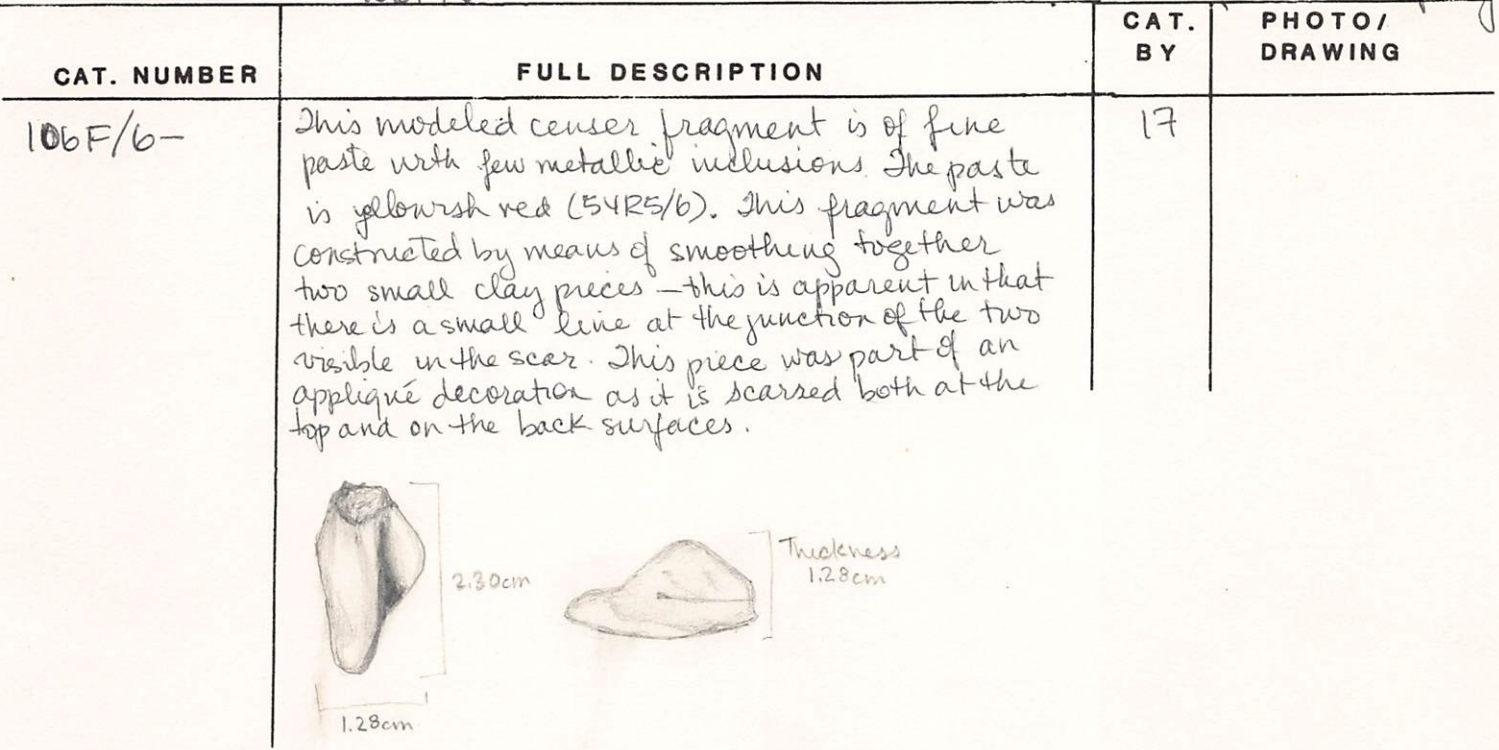 CAT. NUMBER
FULL DESCRIPTION
CAT.
BY
PHOTO/
DRAWING
106F/6-
This modeled censer fragment is of fine
paste with few metallic inclusions. The paste
is yellowish red (5YR5/6). This fragment was
constructed by means of smoothing together
two small clay pieces - this is apparent in that
there is a small line at the junction of the two
visible in the scar. This piece was part of an
appliqué decoration as it is scarred both at the
top and on the back surfaces.
17
2.30cm
1.28cm
Thickness
1.28cm